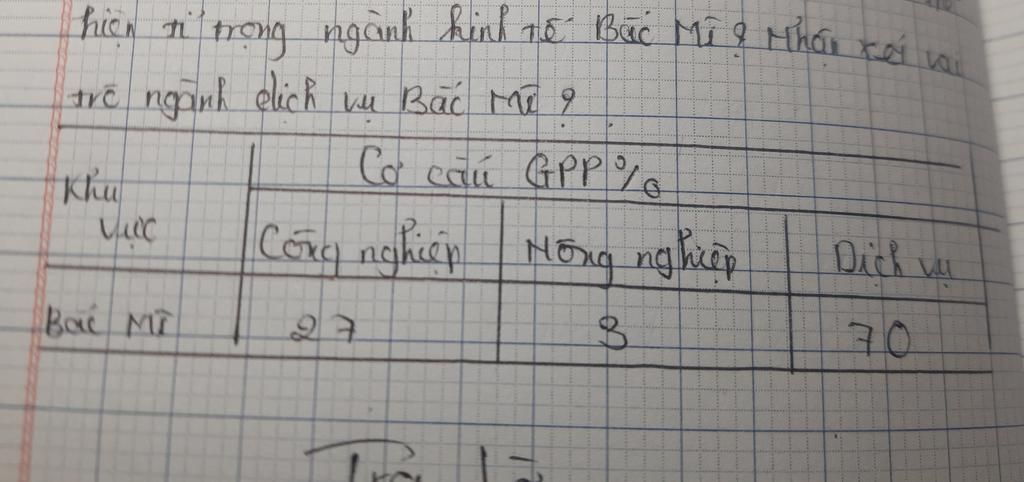 hiện tỉ trọng ngành kinh tế Bắc Mĩ? Nhận xét vai
trò ngành dịch vụ Bắc Mĩ?
Khu vực
Cơ cấu GPP %
Công nghiệp Nông nghiệp Dịch vụ
Bắc Mĩ 27 3 70